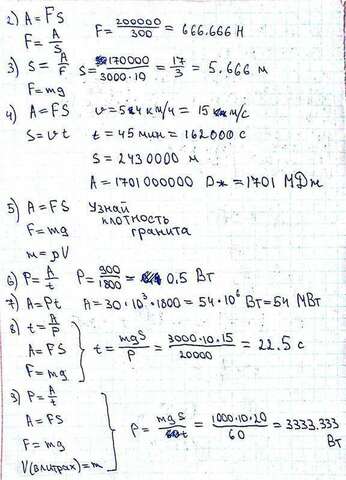 2) A = FS
F = A/S F = 200000/300 = 666.666 Н
3) S = A/F S = 170000/3000·10 = 17/3 = 5.666 м
F = mg
4) A = FS v = 54 км/ч = 15 м/с
S = vt t = 45 мин = 162000 с
S = 2430000 м
A = 1701000000 Дж = 1701 МДж
5) A = FS Узнай
F = mg плотность
гранита
m = ρV
6) P = A/t P = 900/1800 = 0.5 Вт
7) A = Pt A = 30·10³·1800 = 54·10⁶ Вт = 54 МВт
8) t = A/P
A = FS t = mgS/P = 3000·10·15/20000 = 22.5 с
F = mg
9) P = A/t
A = FS P = mgS/t = 1000·10·20/60 = 3333.333
F = mg Вт
V(в литрах) = m